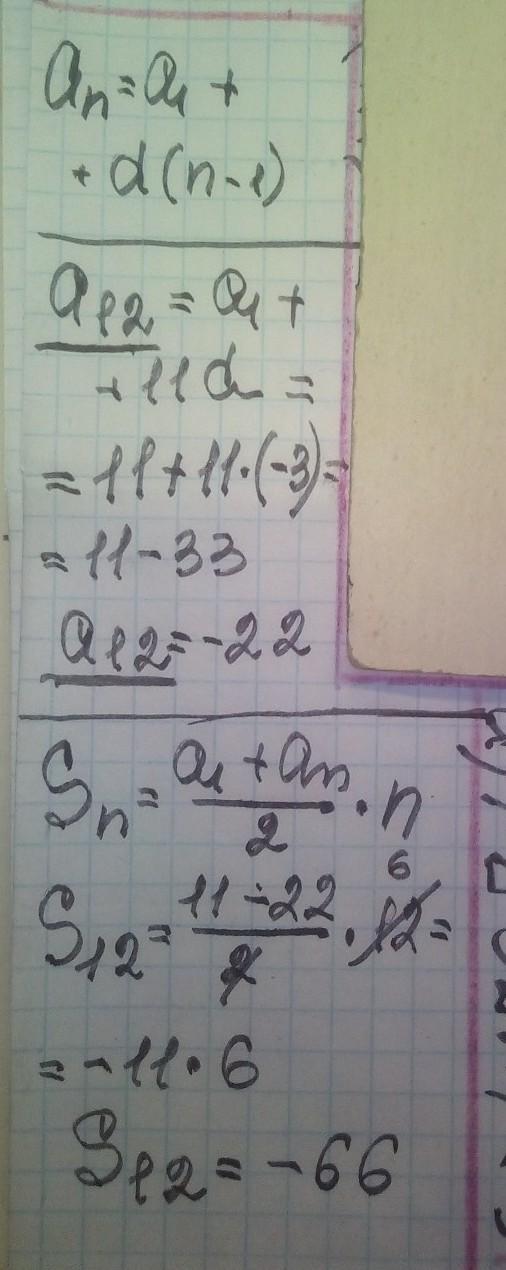 aₙ = a₁ +
+ d(n-1)
a₁₂ = a₁ +
+ 11d =
= 11 + 11·(-3) =
= 11 - 33
a₁₂ = -22
Sₙ = (a₁ + aₙ)/2 · n
6
S₁₂ = (11 - 22)/2 · 12 =
= -11 · 6
S₁₂ = -66